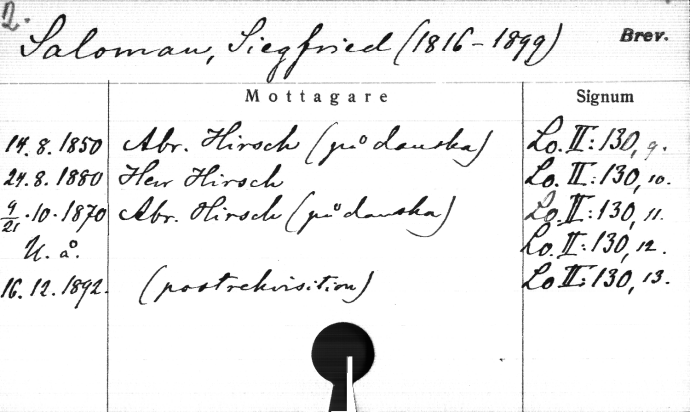 2.
Saloman, Siegfried (1816-1899) Brev.
Mottagare Signum
14.8.1850 Abr. Hirsch (på danska) Lo. II:130, 9.
24.8.1880 Herr Hirsch Lo. II:130, 10.
9/21.10.1870 Abr. Hirsch (på danska) Lo. II:130, 11.
U. å. Lo. II:130, 12.
16.12.1892. (postrekvisition) Lo. II:130, 13.